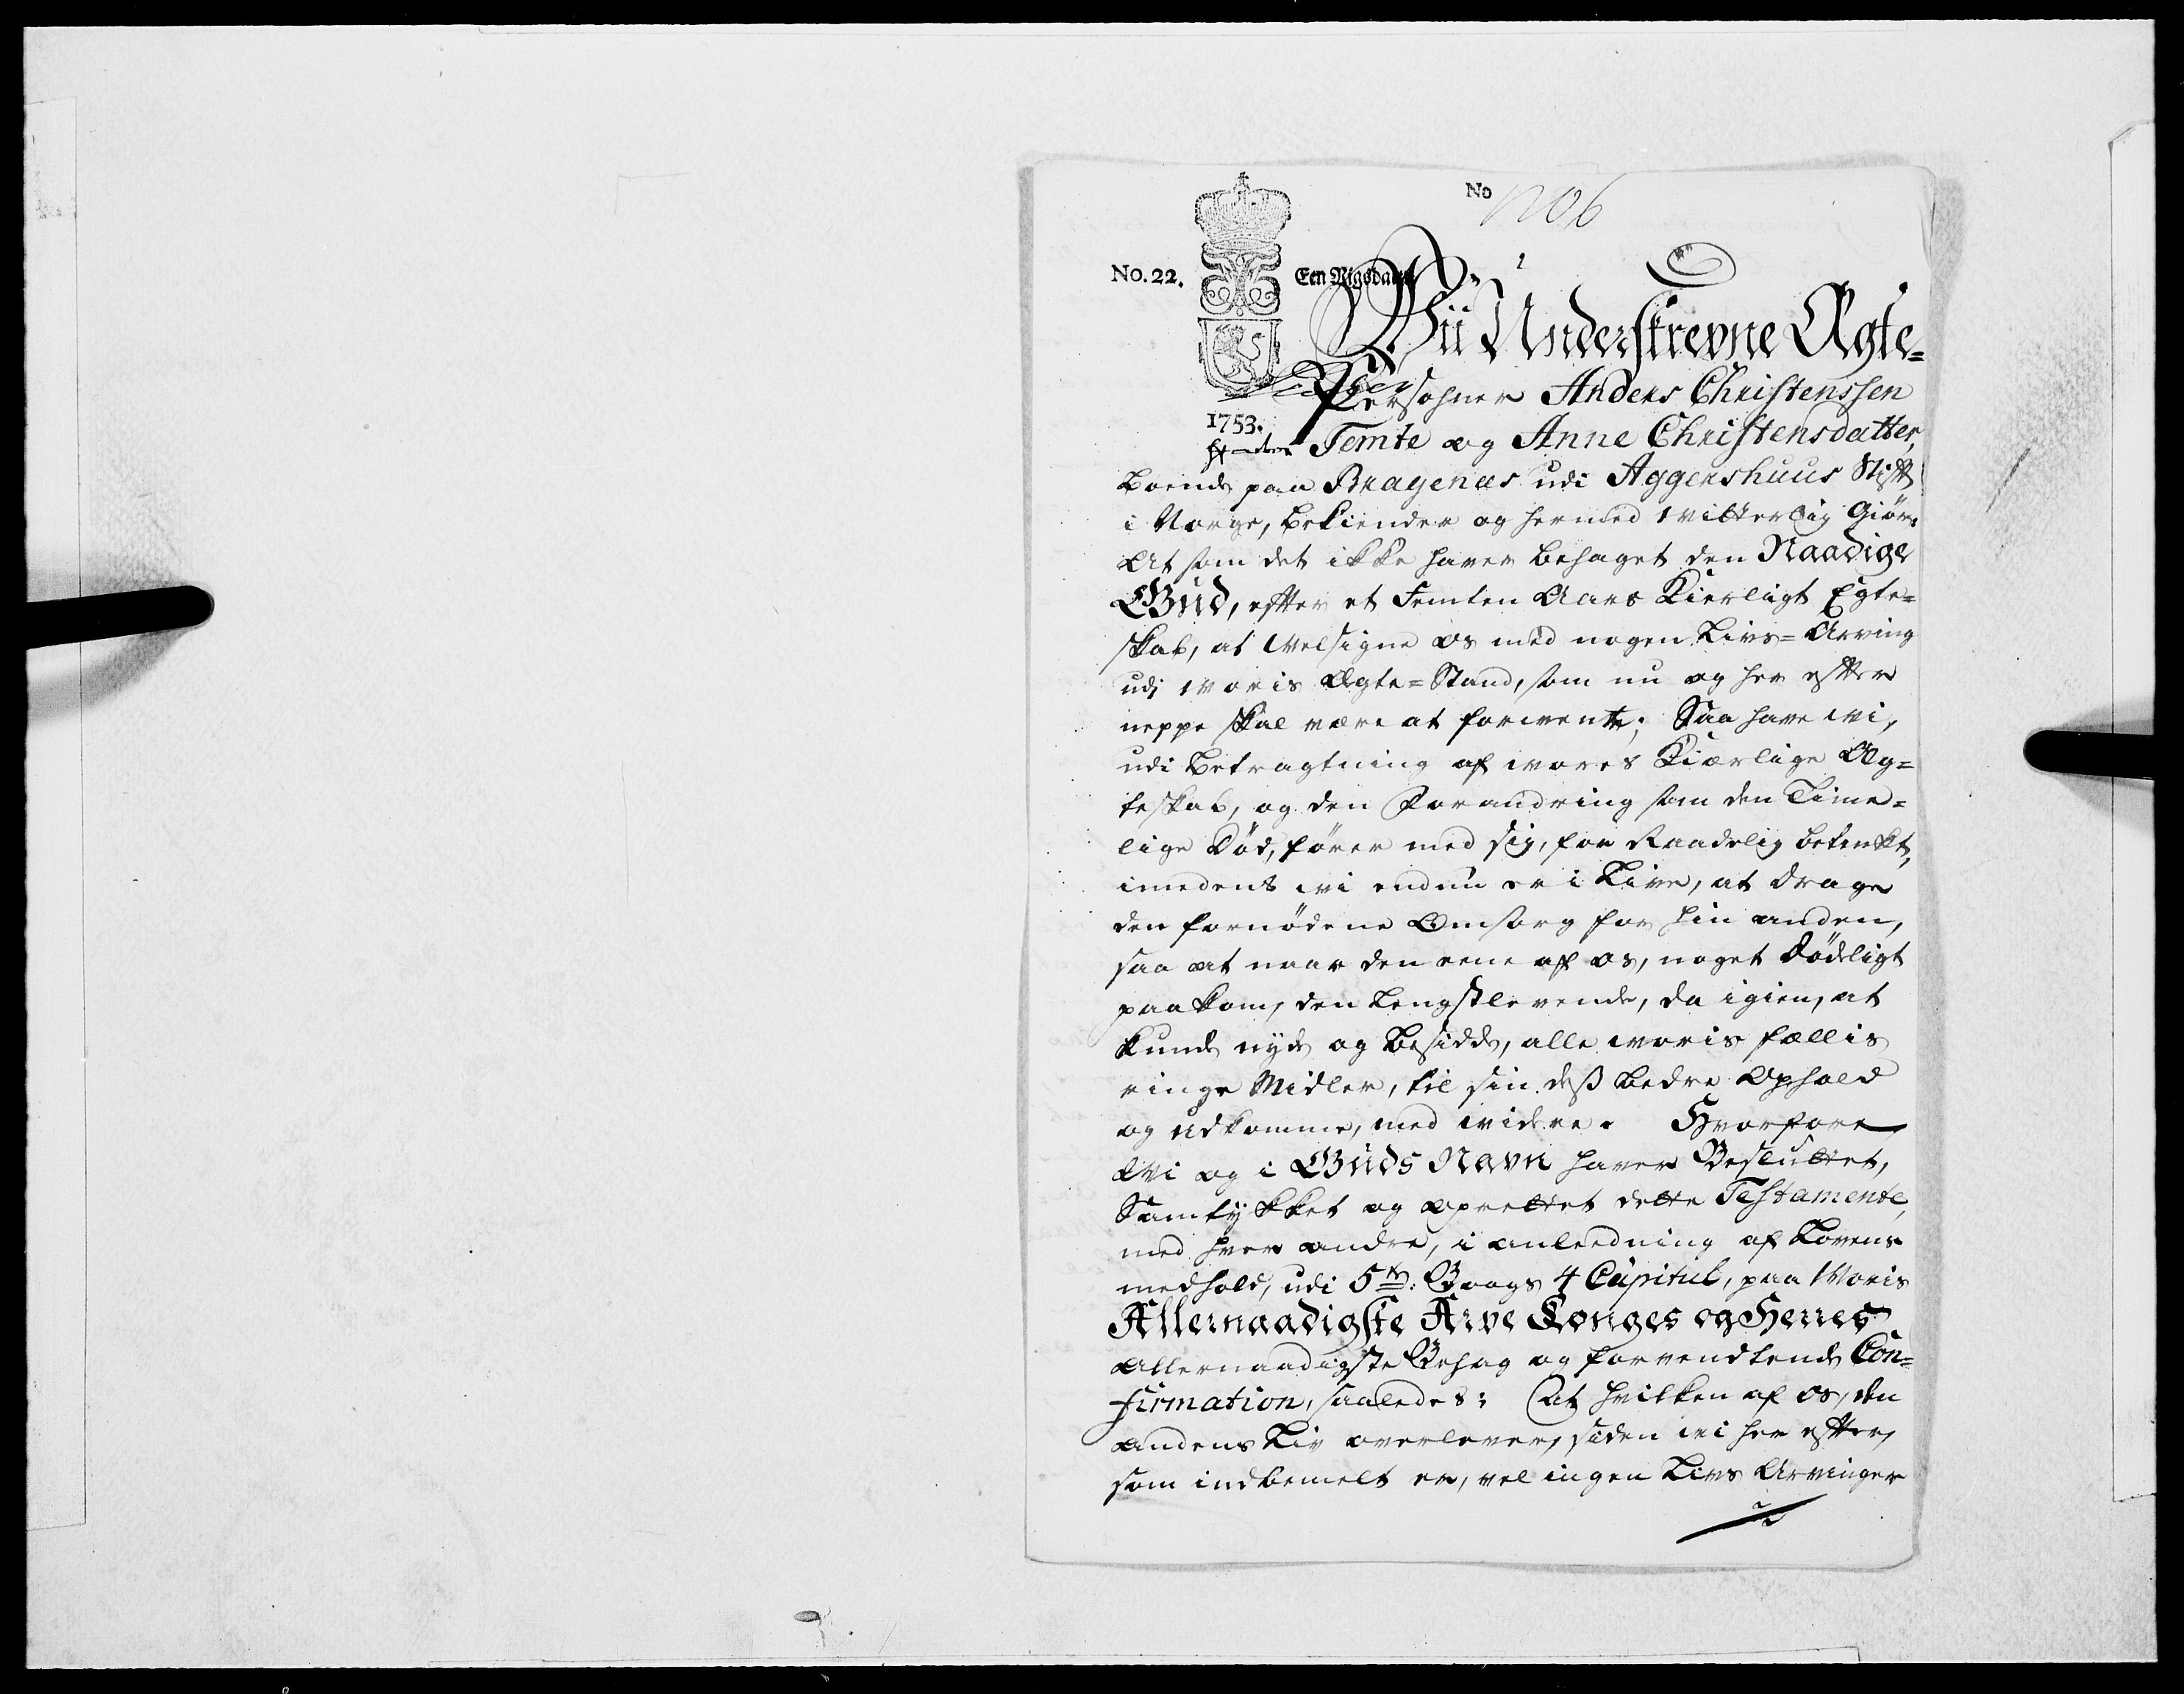 No
No 6
No. 22.
Een Rigsdaler
1753.
Wii Underskrevne Ægte-
Persohner Anders Christenssen
Temte og Anne Christensdatter,
boende paa Bragenæs udi Aggershuus Stift
i Norge, bekiender og hermed witterlig Giør:
At som det ikke haver behaget den Naadige
Gud, efter et Femten Aars Kierligt Egte=
skab, at welsigne os med nogen Livs=Arving
udj woris Ægte=Stand, som nu og her efter
neppe skal være at forwente; Saa have wi,
udi betragtning af wores Kiærlige Æg=
teskab, og den Forandring som den Time=
lige Død, fører med sig, for Raadelig betenkt,
imedens wi endnu er i Live, at drage
den fornødene Omsorg for hin anden,
saa at naar den eene af os, noget dødeligt
paakom, den Lengstlevende, da igien, at
kunde nyde og besidde, alle woris fællis
ringe Midler, til sin deß bedre Ophold
og udkomme, med widere. Hvorfore
Wi og i Guds Navn haver Besluttet,
Samtykket og oprettet dette Testamente,
med hver andre, i anleedning af Lovens
medhold, udi 5te: Bogs 4 Capitul, paa Woris
Allernaadigste Arve Konges og Herres
allernaadigste Behag og forventende Con=
firmation, saaledes: At hvilken af os, den
andens Liv overlever, siden wi her efter,
som indbemelt er, vel ingen Livs Arvinger